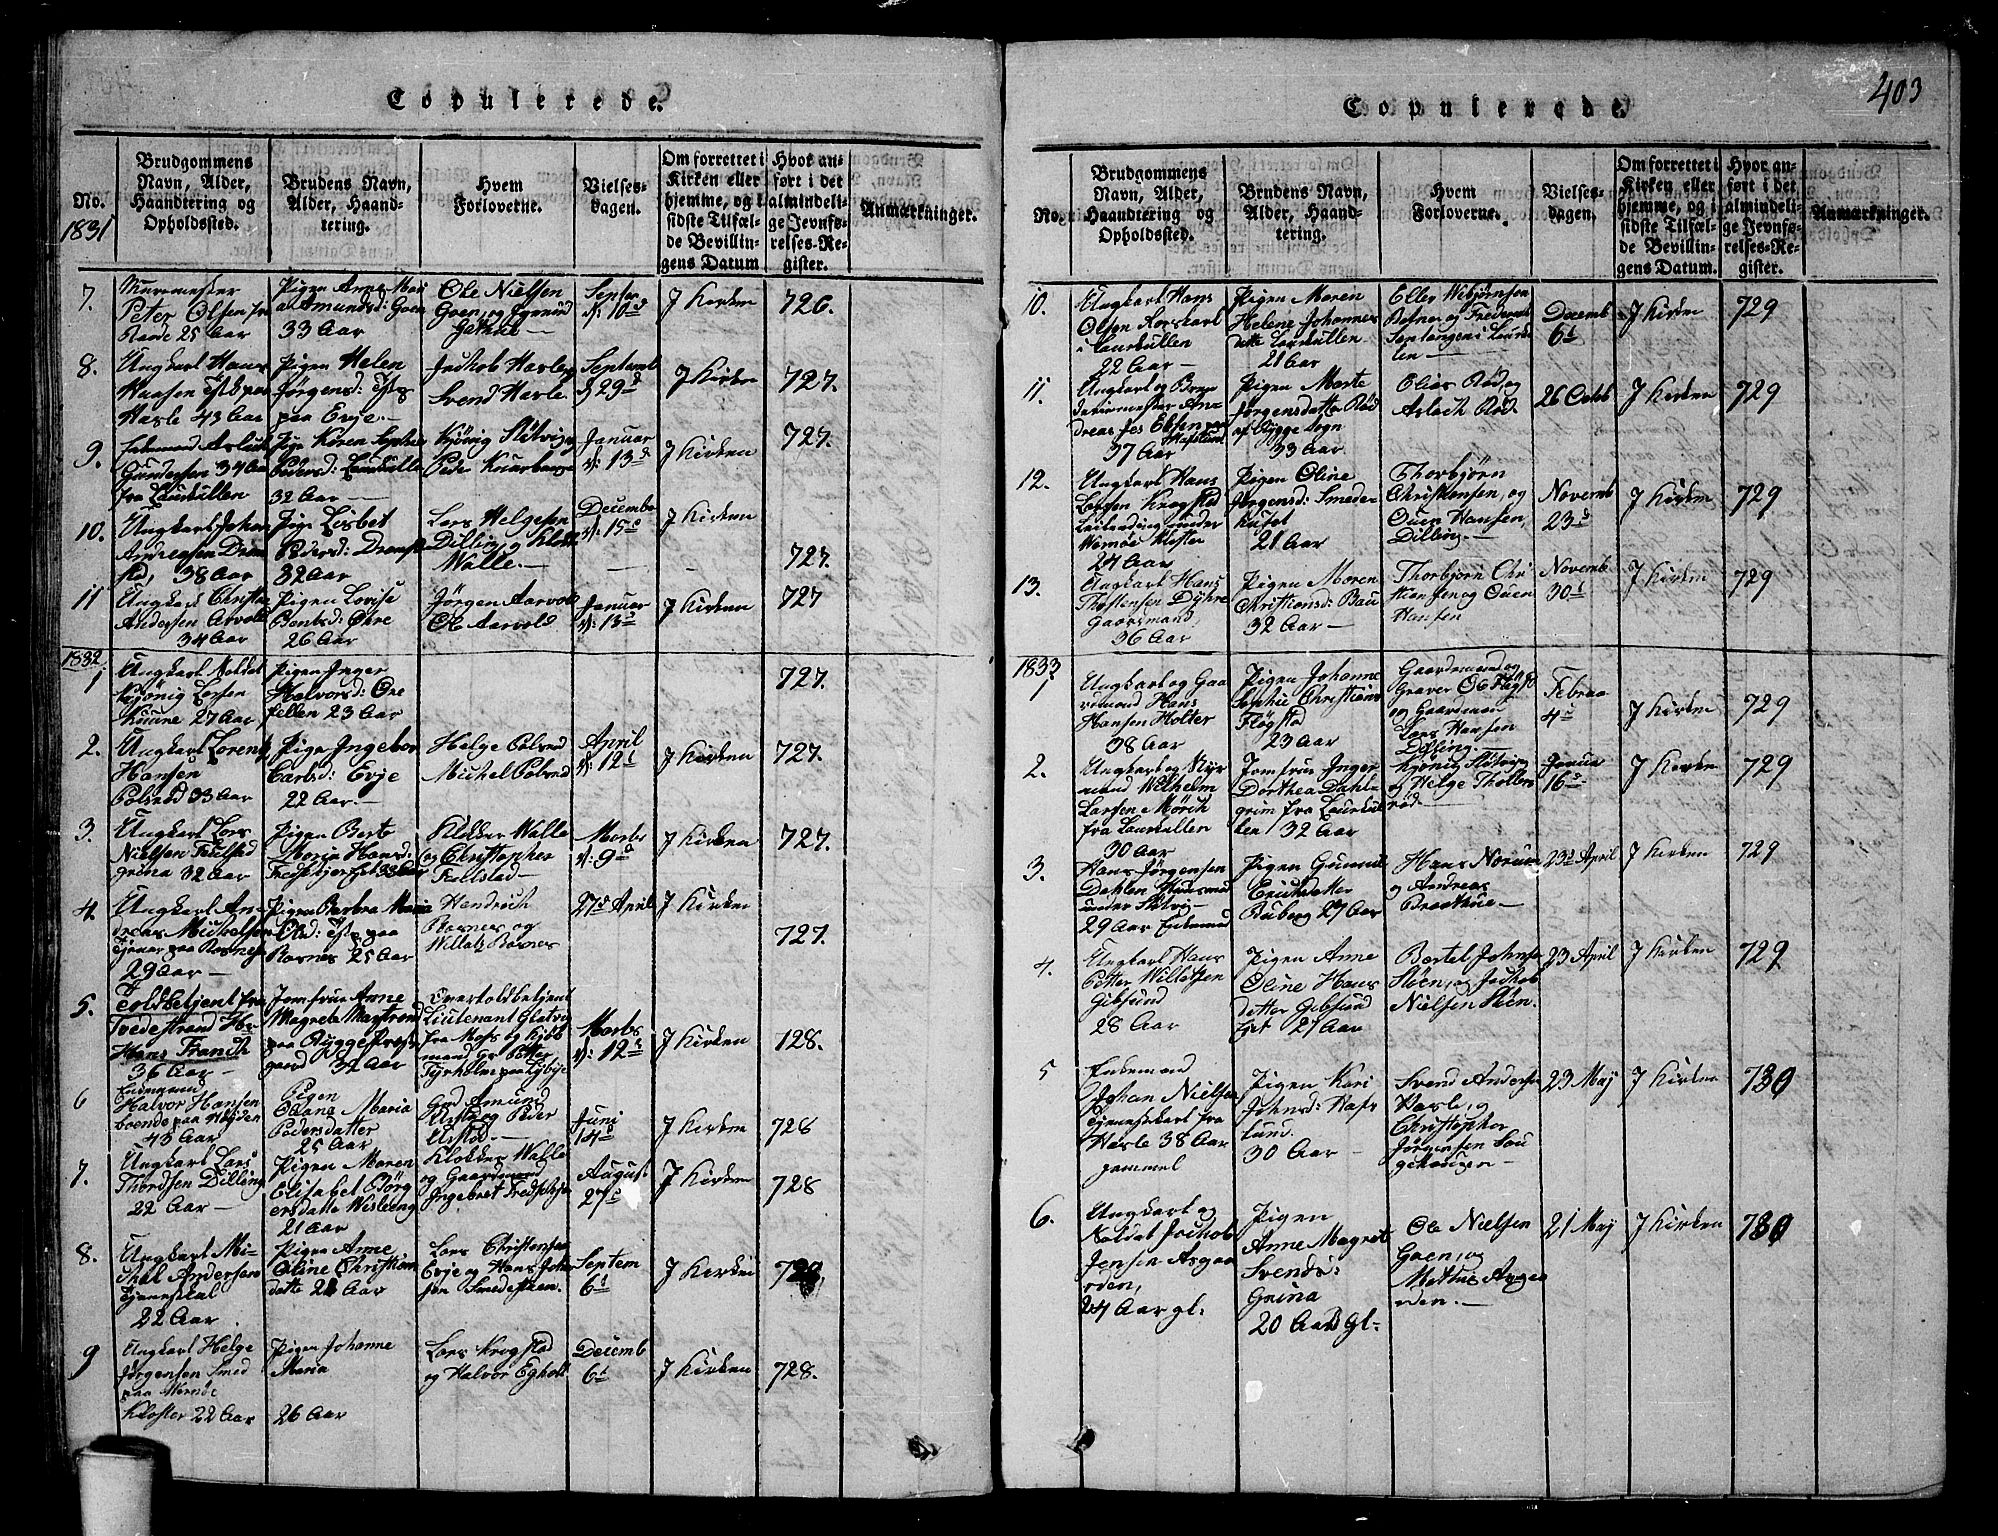 Copulerede.
No.
1831
Brudgommens
Navn, Alder,
Haandtering og
Opholdssted.
Brudens Navn,
Alder, Haand-
tering.
Hvem
Forloverne.
Vielses-
dagen.
Om forrettet i
Kirken eller
hjemme, og i
sidste Tilfæl-
de Bevillin-
gens Datum
Hvor an-
ført i det
almindeli-
ge Jevnfø-
relses-Re-
gister.
Anmærkninger.
7.
Peter Olsen fra
25 Aar
Pigen Anne Mari
a Amundsd: Goen
33 Aar
Ole Nielsen
Goen, og
Septbr
d: 10d
J Kirken
726
8.
Ungkarl Hans
Hansen paa
Hasle 43 Aar
Pigen Helen
Jørgensd:
paa Evje.—
Jachob Hasle og
Svend Hasle
Septemb
d 29d
J Kirken
727.
9.
34 Aar
fra Laurkullen
Pige Karen Sophie
Pedersd: Laurkulle
32 Aar
Kjønig Sletvig
Januar
d: 13d
J Kirken
727.
10.
Ungkarl Johan
Andreasen
38 Aar
Pige Lisbet
Pedersd:
32 Aar
Lars Helgesen
Dilling, og Klokk
Walle.—
Decembr
d: 15d
J Kirken
727.
11
Ungkarl Christen
Andersen Arvold
34 Aar
Pigen Lovise
Bentsd: Øhre
26 Aar
Jørgen Aarvold
Ole Aarvold
Januar
d: 13d
J Kirken
727
1832
1
Ungkarl Soldat
Kjønig Larsen
Kuure 27 Aar
Pigen Inger
Halvorsd: Ore
fellen 23 Aar
727.
2.
Ungkarl Lorentz
Hansen
33 Aar
Pige Ingebor
Carlsd: Evje
22 Aar.—
Helge
Michel
April
d: 12d
J Kirken
727.
3.
Ungkarl Lars
Nielsen
grina 32 Aar
Pigen Berte
Maria Hansd:
Klokker Walle
og Christopher
Marts
d: 9d
J Kirken
727.
4.
Ungkarl An-
dreas Michelsen
Tjener paa Rosnes
29 Aar —
Pigen Barbra Maria
Olsd: paa
Rosnes 25 Aar
Hendrich
Rosnes og
Rosnes
27d April
J Kirken
727.
5.
Toldbetjent fra
Tvedestrand Hr
Hans Frandt
36 Aar —
Jomfrue Anne
Magrete
paa Rygge Prest
gaard 32 Aar
Overtoldbetjent
Lieutenant
fra Moss og Kjøb
mand Gr Petter
Tyrholm paa
Marts
d: 12d
J Kirken
128.
6
Enkemand
Halvor Hansen
boende paa Højden
43 Aar
Pigen
Oleane Maria
Pedersdatter
25 Aar
Gud Amund
og Peder
Juni
14d
J Kirken
728
7.
Ungkarl Lars
Thordsen Dilling
22 Aar —
Pigen Maren
Elisabet Børg
ersdatte
21 Aar
Klokker Walle
og Gaardmand
Ingebret
August
27d
J Kirken
728
8.
Ungkarl Mi-
chel Andersen
Tjenestkarl
22 Aar
Pigen Anne
Oline Christian
datte 21 Aar
Lars Christensen
Evje og Hans Johan
sen
Septem
6d
J Kirken
728
9
Ungkarl Helge
Jørgensen Smed
paa Wernøe
Kloster 22 Aar
Pigen Johanne
Maria
26 Aar
Lars Krogstad
og Halvor Egholt
Decemb
6d
J Kirken
728.
403
Copulerede.
No.
Brudgommens
Navn, Alder,
Haandtering og
Opholdssted.
Brudens Navn,
Alder, Haand-
tering.
Hvem
Forloverne.
Vielses-
dagen.
Om forrettet i
Kirken eller
hjemme, og i
sidste Tilfæl-
de Bevillin-
gens Datum.
Hvor an-
ført i det
almindeli-
ge Jevnfø-
relses-Re-
gister.
Anmærkninger.
10.
Ungkarl Hans
Olsen
i Laurkullen
22 Aar —
Pigen Maren
Helene Johannes
datte Laurkullen
21 Aar
Eller Wibjørnsen
og Frederik
i Laurkul
len —
Decemb
6d
J Kirken
729
11.
Ungkarl og
An-
dreas Jes Ebsen
37 Aar
Pigen Marte
Jørgensdatte Rød
af Rygge Sogn
33 Aar.
Olies Rød, og
Aslach Rød
26 Octob
J Kirken
729
12.
Ungkarl Hans
Larsen Krogstad
under
Wernøe Kloster
24 Aar
Pigen Oline
Jørgensd: Smeder
huset
21 Aar
Thorbjørn
Christensen, og
Ouen Hansen,
Dilling.—
Novemb
23d
J Kirken
729
13.
Ungkarl Hans
Thostensen Dÿhre
Gaarsmand,
36 Aar
Pigen Maren
Christiansd: Bau
32 Aar —
Thorbjørn Chri
stiensen og Ouen
Hansen
Novemb
30d
J Kirken
729
1833
1
Ungkarl og Gaa
rsmand Hans
Hansen Holter
38 Aar
Pigen Johanne
Sophie Christians
Fløgstad
23 Aar
Gaardmand og
Graver Ole
og Gaardmand
Lars Hansen
Dilling.
Febrau
4d
J Kirken
729
2.
Ungkarl og Styr
mand Wilhelm
Larsen Mørch
fra Laurkullen
30 Aar
Jomfrue Inger
Dorthea Dahl-
grim fra Laurkul
len 32 Aar
Kjønig Sletvig
og Helge Tholler
rød.—
Januar
16d
J Kirken
729
3.
Hans Jørgensen
Dahlen Huusmand
under
29 Aar Enkemand
Pigen
Buberg 27 Aar
Hans Norum
og Andreas
23d April
J Kirken
729
4.
Ungkarl Hans
Petter Willatsen
Gibsund
28 Aar
Pigen Anne
Oline Hans
detter Gibsund
21 Aar
Bertel Johnsen
Støen, og Jachob
Nielsen Støen.
23 April
J Kirken
729
5
Enkemand
Johan Nielsen
Tjenestekarl fra
Hasle 38 Aar
gammel
Pigen Kari
Johnsd:
lund.
30 Aar —
Svend Andersen
Hasle, og
Christopher
Jørgensen
23 Maj
J Kirken
730
6.
Ungkarl og
Soldat Jachob
Jensen Asgaa
rden,
24 Aar gl:
Pigen
Anne Magret
Svends:
Grina
20 Aar gl-
Ole Nielsen
Goen, og
Mathis Asgaa
rden.—
21 Maj
J Kirken
730